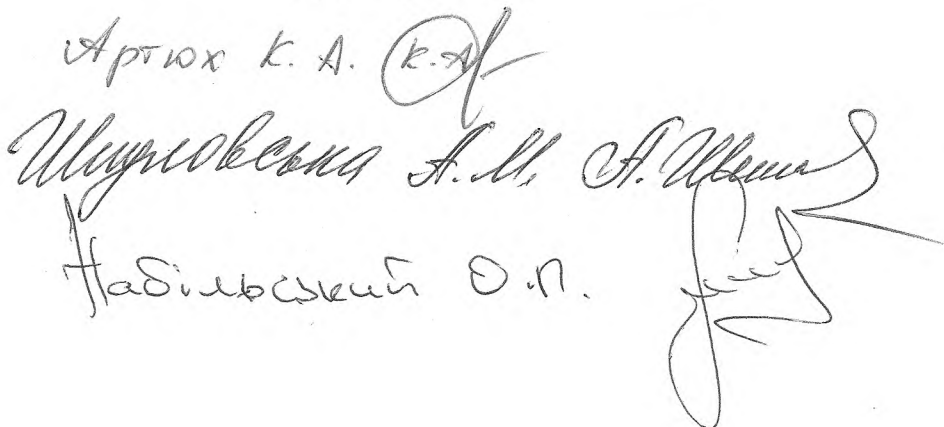 Артюх К. А. К.А
Шидловська А. М. А. Ши
Набільський О.П.